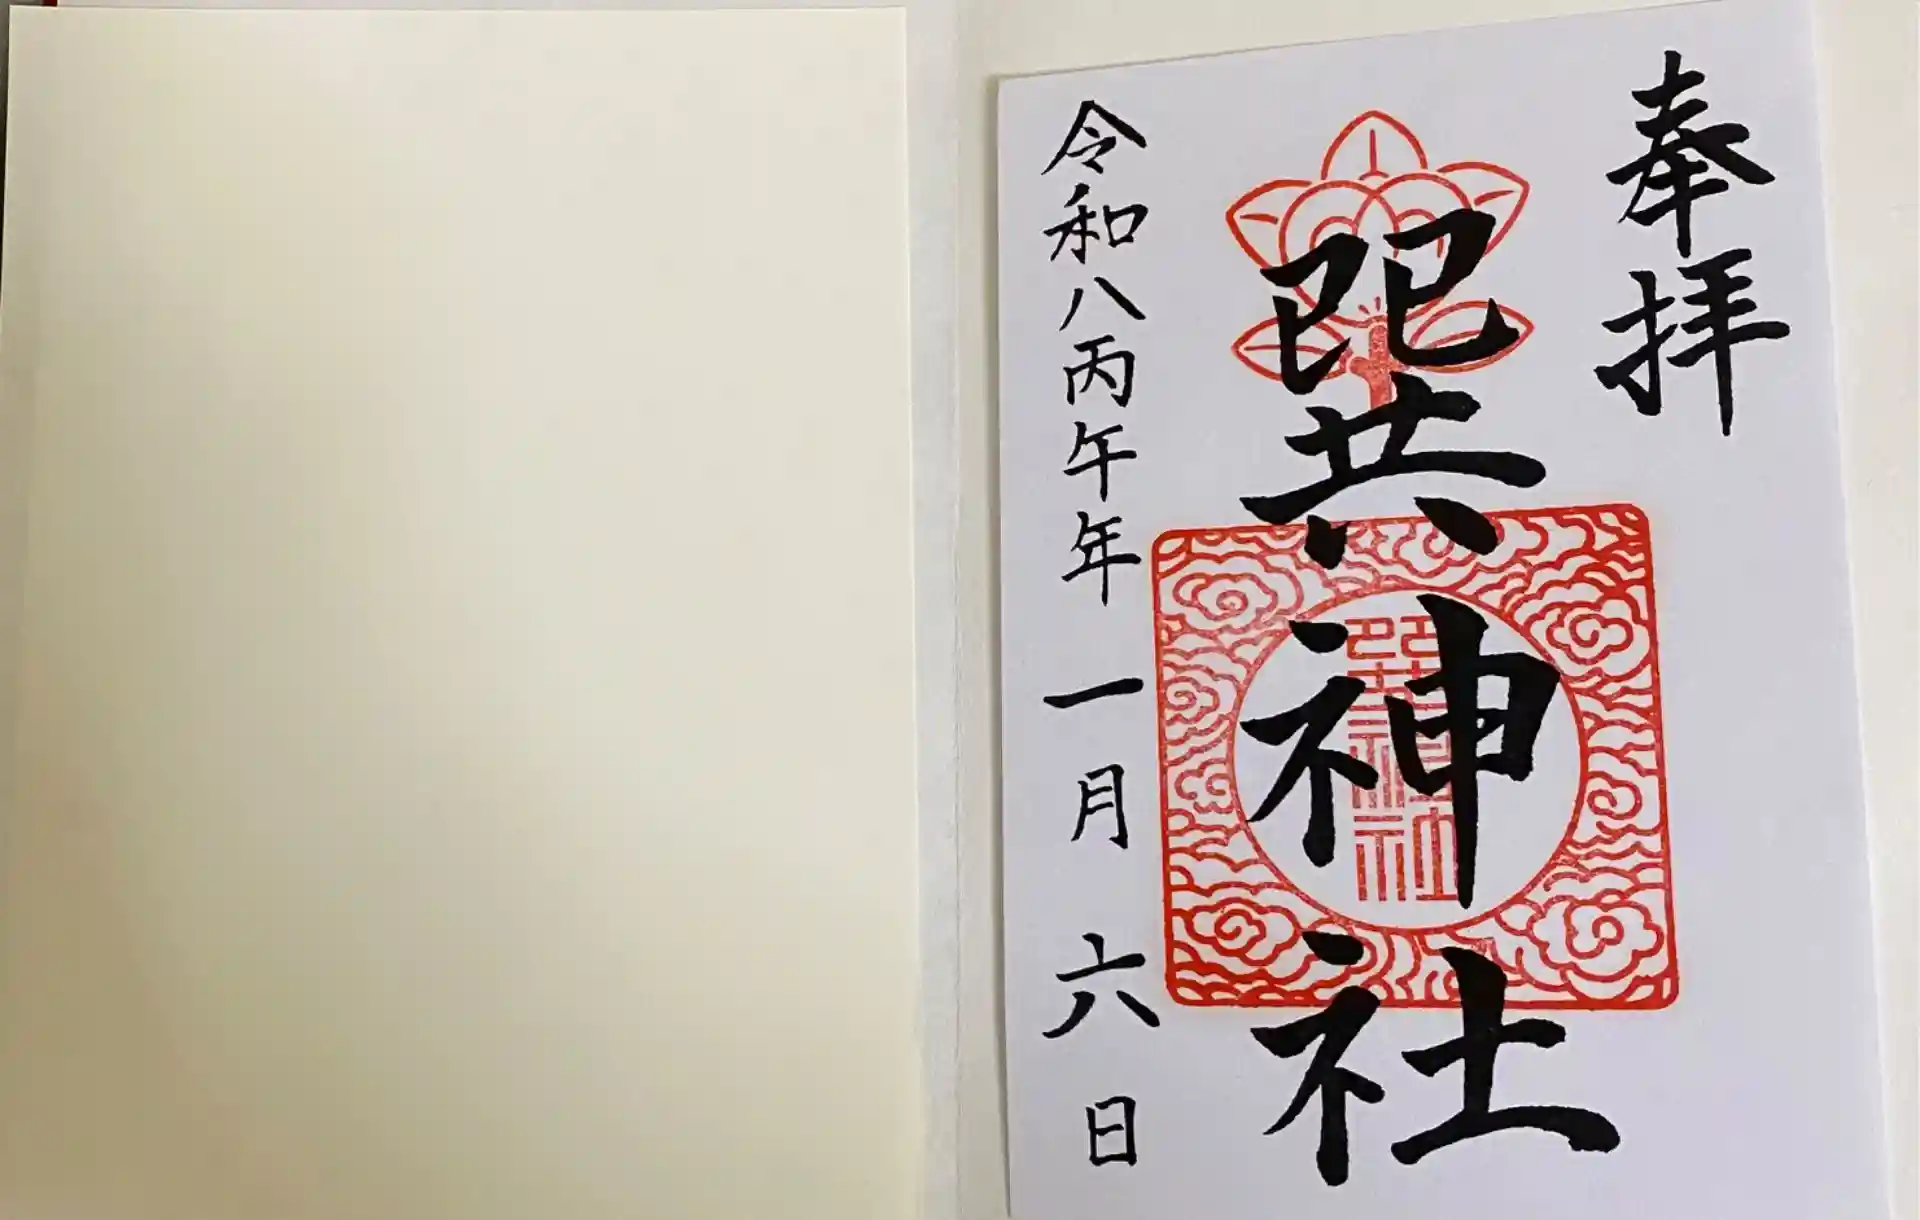 奉拝
巽神社
令和八丙午年一月六日
巽神社